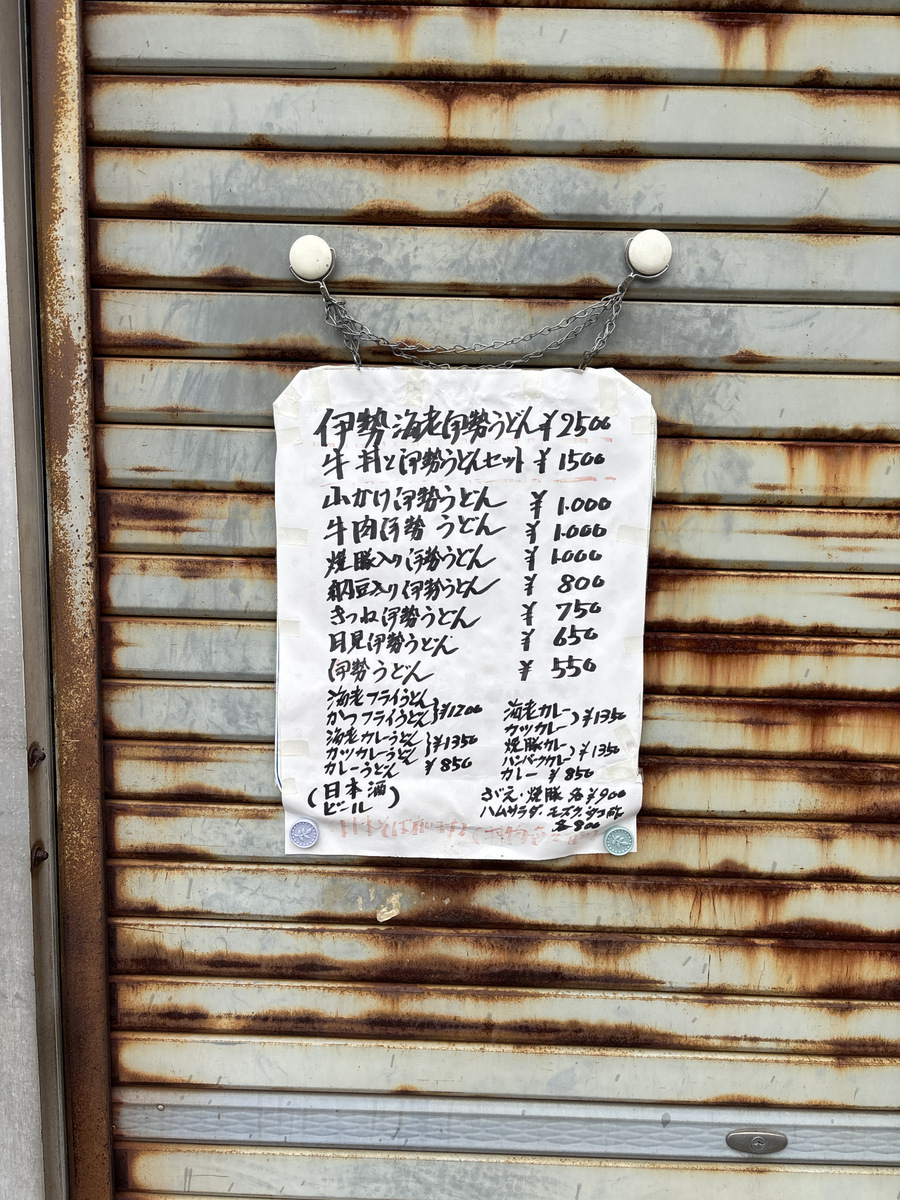 伊勢海老伊勢うどん ¥2500
牛丼と伊勢うどんセット ¥1500
山かけ伊勢うどん ¥1.000
牛肉伊勢うどん ¥1.000
焼豚入り伊勢うどん ¥1000
納豆入り伊勢うどん ¥800
きつね伊勢うどん ¥750
月見伊勢うどん ¥650
伊勢うどん ¥550
海老フライうどん
かつフライうどん }¥1200
海老カレーうどん
カツカレーうどん }¥1350
カレーうどん ¥850
海老カレー
カツカレー )¥1350
焼豚カレー
ハンバークカレー )¥1350
カレー ¥850
(日本酒
ビール)
さざえ・焼豚 各¥900
ハムサラダ・モズク・
各800